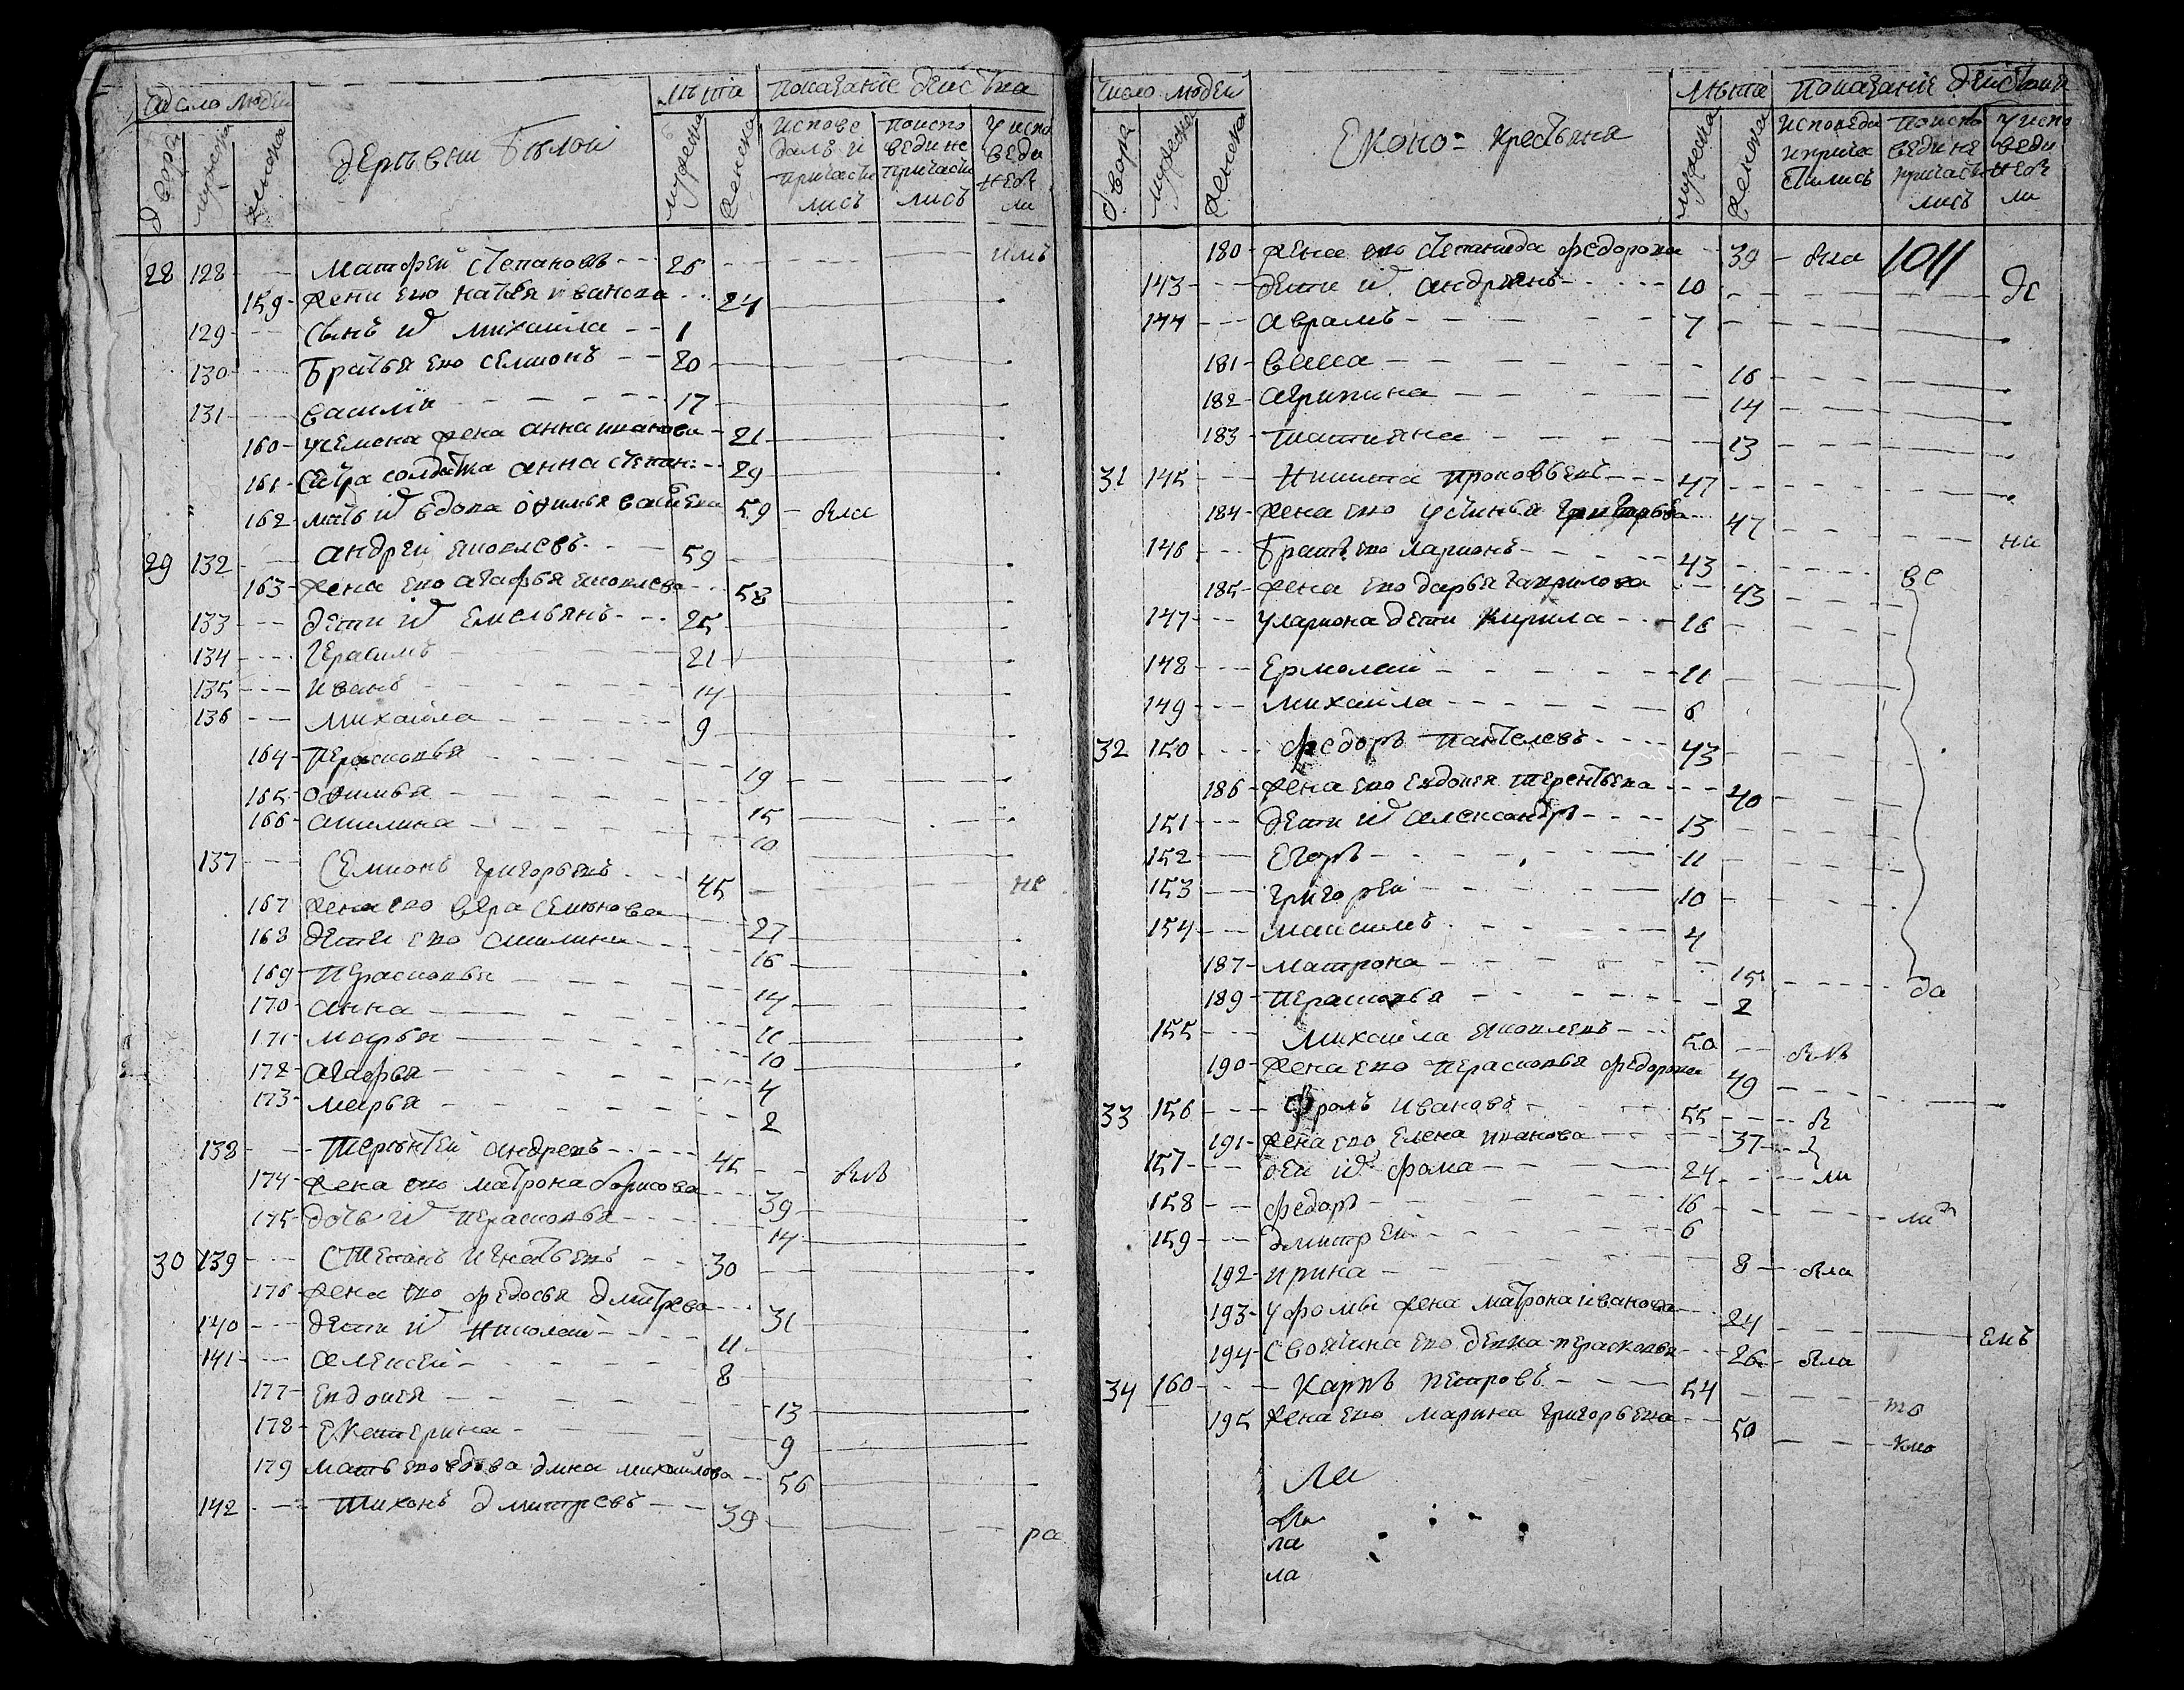 Число людей
двора
мужеска
женска
деревни Белой
лѣта
мужеска
женска
показание действа
исповедались и причастились
по исповеди не причастились
у исповеди не были
28 128 Матфей Степановъ 26
159 жена ево Наталья Иванова 24
129 Сынъ их Михайла 1
130 Братья ево Семионъ 20
131 Василiй 17
160 у Семена жена Анна Иванова 21
161 Сестра солдатка Анна Степан: 29
162 мать их вдова Офимья 59 была
29 132 Андрей Яковлевъ 59
163 жена ево Агафья Яковлева 58
133 дети их Емельянъ 25
134 Герасимъ 21
135 Иванъ 14
136 Михайла 9
164 Перасковья 19
165 Офимья 15
166 Акилина 10
137 Семионъ Григорьевъ 45 не
167 жена ево Вера Семионова 27
168 дети ево Акилина 16
169 Перасковья 14
170 Анна 11
171 Марья 10
172 Агафья 4
173 Марья 2
138 Терентей Андреевъ 45 былъ
174 жена ево Матрона Борисова 39
175 дочь их Перасковья 14
30 139 Степанъ Игнатьевъ 30
176 жена ево Федосья Дмитрева 31
140 дети их Николай 11
141 Алексей 8
177 Евдокея 13
178 Екатерина 9
179 мать ево вдова Михайлова 56
142 Тихонъ Дмитревъ 39 ра
Число людей
двора
мужеска
женска
Еконо= крестьяня
лѣта
мужеска
женска
показание действия
исповеда и причастились
по исповеди не причастились
у исповеди не были
1011
180 жена ево Степанида Федорова 39 была
143 дети их Андреянъ 10 дс
144 Аврамъ 7
181 16
182 Агрипина 14
183 Татияна 13
31 145 Никита Прокофьевъ 47
184 жена ево Устинья Григорьева 47
146 Братъ ево Ларионъ 43 ни
185 жена ево Дарья Гаврилова 43 вс
147 у Лариона дети Кирила 16
148 Ермолай 11
149 Михайла 6
32 150 Федоръ Пантелевъ 43
186 жена ево Евдокея Терентьева 40
151 дети их Александръ 13
152 Егоръ 11
153 Григорей 10
154 Максимъ 4
187 Матрона 15
189 Перасковья 2 да
155 Михайла Яковлевъ 50 былъ
190 жена ево Перасковья Федорова 49
33 156 Фролъ Ивановъ 55 бы
191 жена ево Елена Иванова 37
157 дети их Фома 24 ли
158 Федоръ 16
159 Дмитрей 6
192 Ирина 8 была
193 у Фомы жена Матрона Иванова 24
194 Своячина ево девка Перасковья 26 была
емъ
34 160 Карпъ Петровъ 54
195 жена ево Марина Григорьева 50
ла
ла
ла